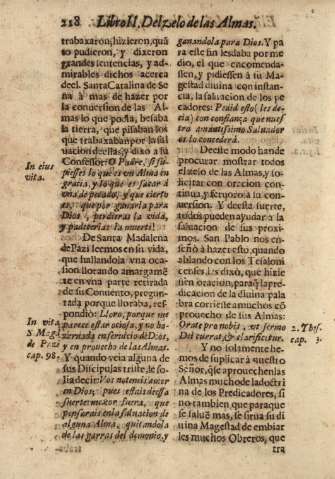 218 Libro II. Del zelo de las Almas.
trabaxaron, hizieron, quã
to pudieron, y dixeron
grandes sentencias, y ad-
mirables dichos acerca
deel. Santa Catalina de Se
na à mas de hazer por
la conuersion de las Al
mas lo que podia, besaba
la tierra, que pisaban los
que trabaxaban por la sal
uacion dellas, y dixo a su
Confessor: O Padre, si su-
piesses lo que es un Alma en
gracia, y lo que es sacar à
vna de pecado, y que cierto
es, que por ganarla para
Dios, perdieras la vida,
y padecerias la muerte!
In eius
vita.
De Santa Madalena
de Pazi leemos en su vida,
que hallandola vna oca
sion llorando amargamẽ
te en vna parte retirada
de su Conuento, pregun-
tada porque lloraba, res-
pondio: Lloro, porque me
parece estar ociosa, y no ha-
zer nada en seruicio de Dios,
y en prouecho de las Almas.
In vita
S. Magd.
de Pazi
cap. 98.
Y quando veia alguna de
sus Discipulas triste, le so
lia decir: Vos no teneis amor
en Dios, pues estais dessa
suerte
pensarais en la saluacion de
alguna Alma, quitandola
de las garras del demonio, y
ganandola para Dios. Y pa
ra este fin les daba por me
dio, el que encomenda-
ssen, y pidiessen à su Ma-
gestad diuina con instan-
cia, la saluacion de los pe
cadores: Pedid esto (les de-
cia) con confiança que nues
tro amantissimo Saluador
os lo concederà.
Deste modo han de
procurar mostrar todos
el zelo de las Almas, y so-
licitar con oracion con-
tinua, y feruorosa su con-
uersion. Y desta suerte,
todos pueden ayudar a la
saluacion de sus proxi-
mos. San Pablo nos en-
señò à hazer esto, quando
ablando con los Tesaloni
censes, les dixo, que hizie
ssen oracion, para q̃ la pre-
dicacion de la diuina pala
bra corriesse a muchos cõ
prouecho de sus Almas:
Orate pro nobis, vt sermo
Dei currat, & clarificetur.
2. Thes.
cap. 3.
Y no solamente he-
mos de suplicar à nuestro
Señor, q̃ se aprouechen las
Almas mucho de la doctri
na de los Predicadores, si
no tambien que para que
se saluẽ mas, se sirua su di
uina Magestad de embiar
les muchos Obreros, que
tra